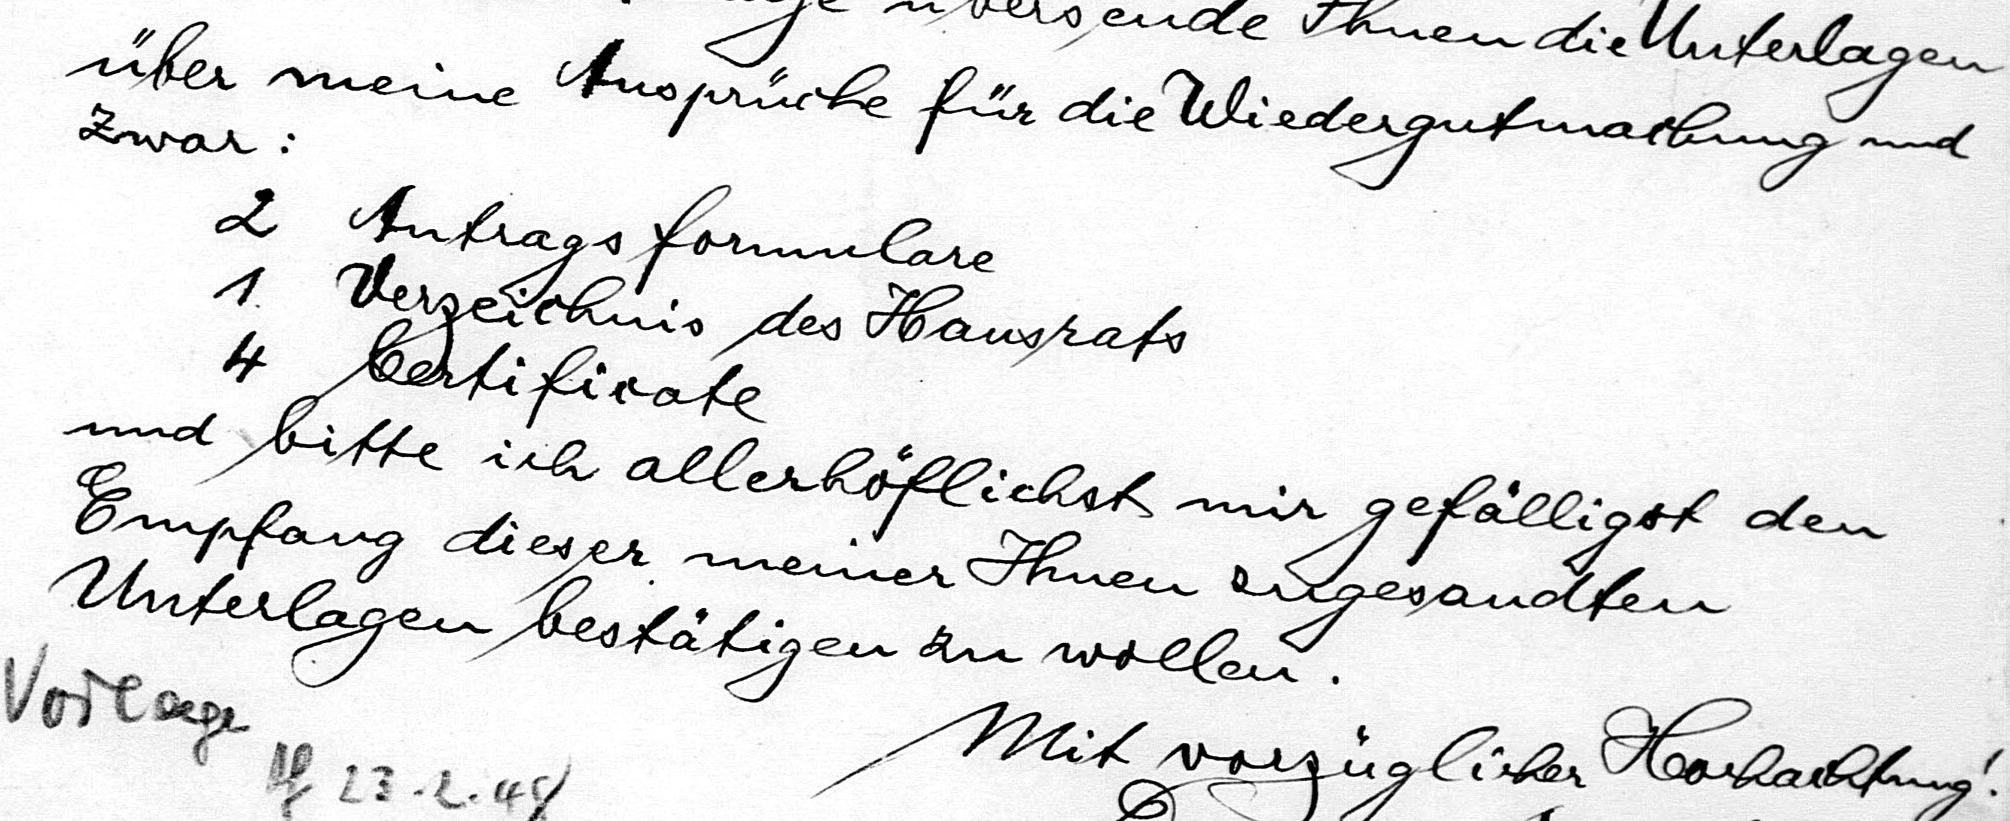 übersende Ihnen die Unterlagen
über meine Ansprüche für die Wiedergutmachung und
zwar:
2 Antragsformulare
1 Verzeichnis des Hausrats
4 Certificate
und bitte ich allerhöflichst mir gefälligst den
Empfang dieser meiner Ihnen zugesandten
Unterlagen bestätigen zu wollen.
Vorlage
Mit vorzüglicher Hochachtung!
23.2.48